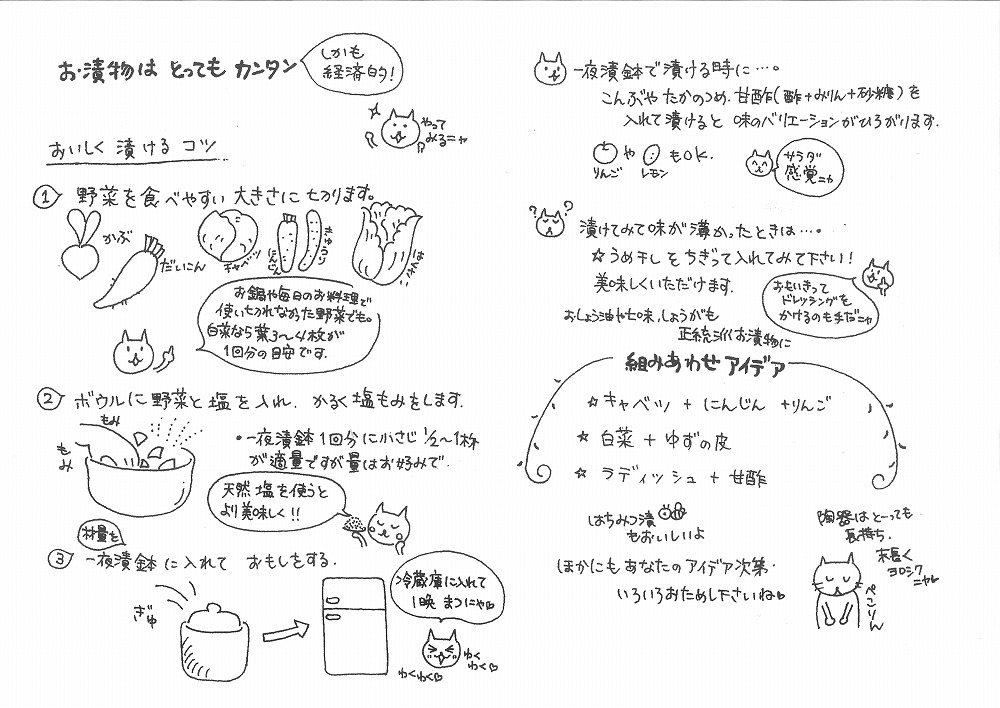 お漬物は とっても カンタン
しかも
経済的!
やって
みるニャ
おいしく 漬ける コツ
① 野菜を食べやすい大きさに切ります。
かぶ
だいこん
キャベツ
にんじん
きゅうり
はくさい
お鍋や毎日のお料理で
使い切れなかった野菜でも。
白菜なら葉3〜4枚が
1回分の目安です.
② ボウルに野菜と塩を入れ. かるく塩もみをします.
もみ
もみ
・一夜漬鉢1回分に小さじ1/2〜1杯
が適量ですが量はお好みで.
天然塩を使うと
より美味しく!!
材量を
③ 一夜漬鉢に入れて おもしをする.
ぎゅ
冷蔵庫に入れて
1晩 まつにゃ♡
わくわく♡
わく
わく♡
一夜漬鉢で漬ける時に…。
こんぶや たかのつめ. 甘酢(酢+みりん+砂糖)を
入れて漬けると 味のバリエーションがひろがります.
や もOK.
りんご レモン
サラダ
感覚ニャ
? ?
漬けてみて味が薄かったときは…。
☆うめ干しをちぎって入れてみて下さい!
美味しくいただけます.
おもいきって
ドレッシングを
かけるのも手だニャ
おしょう油や七味,しょうがも
正統派お漬物に
組みあわせ アイデア
☆ キャベツ + にんじん +りんご
☆ 白菜 + ゆずの皮
☆ ラディッシュ + 甘酢
はちみつ漬
もおいしいよ
ほかにもあなたのアイデア次第.
いろいろおためし下さいね♡
陶器はとーっても
長持ち.
末長く
ヨロシク
ニャ♡
ぺこりん